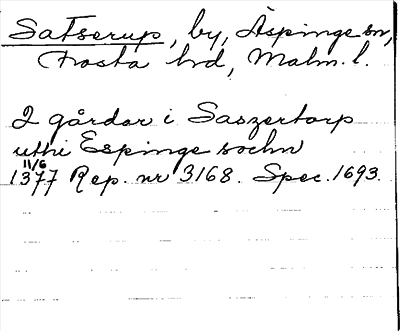 Satserup, by, Äspinge sn,
Frosta hd, Malm. l.
2 gårdar i Saszertorp
uthi Espinge sochn
11/6
1377 Rep. nr 3168. Spec. 1693.